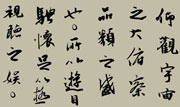 仰觀宇宙
之大俯察
品類之盛
所以遊目
騁懷足以極
視聽之娛